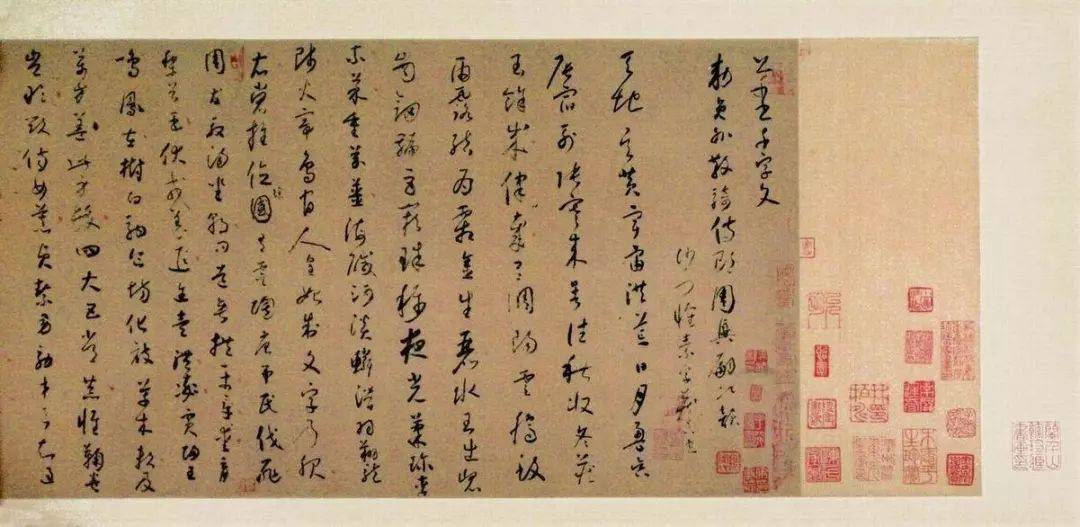 千字文
勅員外散騎侍郎周興嗣次韻
沙門懷素字藏真
天地玄黃宇宙洪荒日月盈昃
辰宿列張寒來暑往秋收冬藏
閏餘成歲律召調陽雲騰致
雨露結為霜金生麗水玉出崑
崗劍號巨闕珠稱夜光菓珍李
柰菜重芥薑海鹹河淡鱗潛羽翔龍
師火帝鳥官人皇始制文字乃服
衣裳推位讓國有虞陶唐弔民伐罪
周發殷湯坐朝問道垂拱平章愛育
黎首臣伏戎羌遐邇壹體率賓歸王
鳴鳳在樹白駒食場化被草木賴及
萬方蓋此身髮四大五常恭惟鞠養
豈敢毀傷女慕貞潔男效才良知過